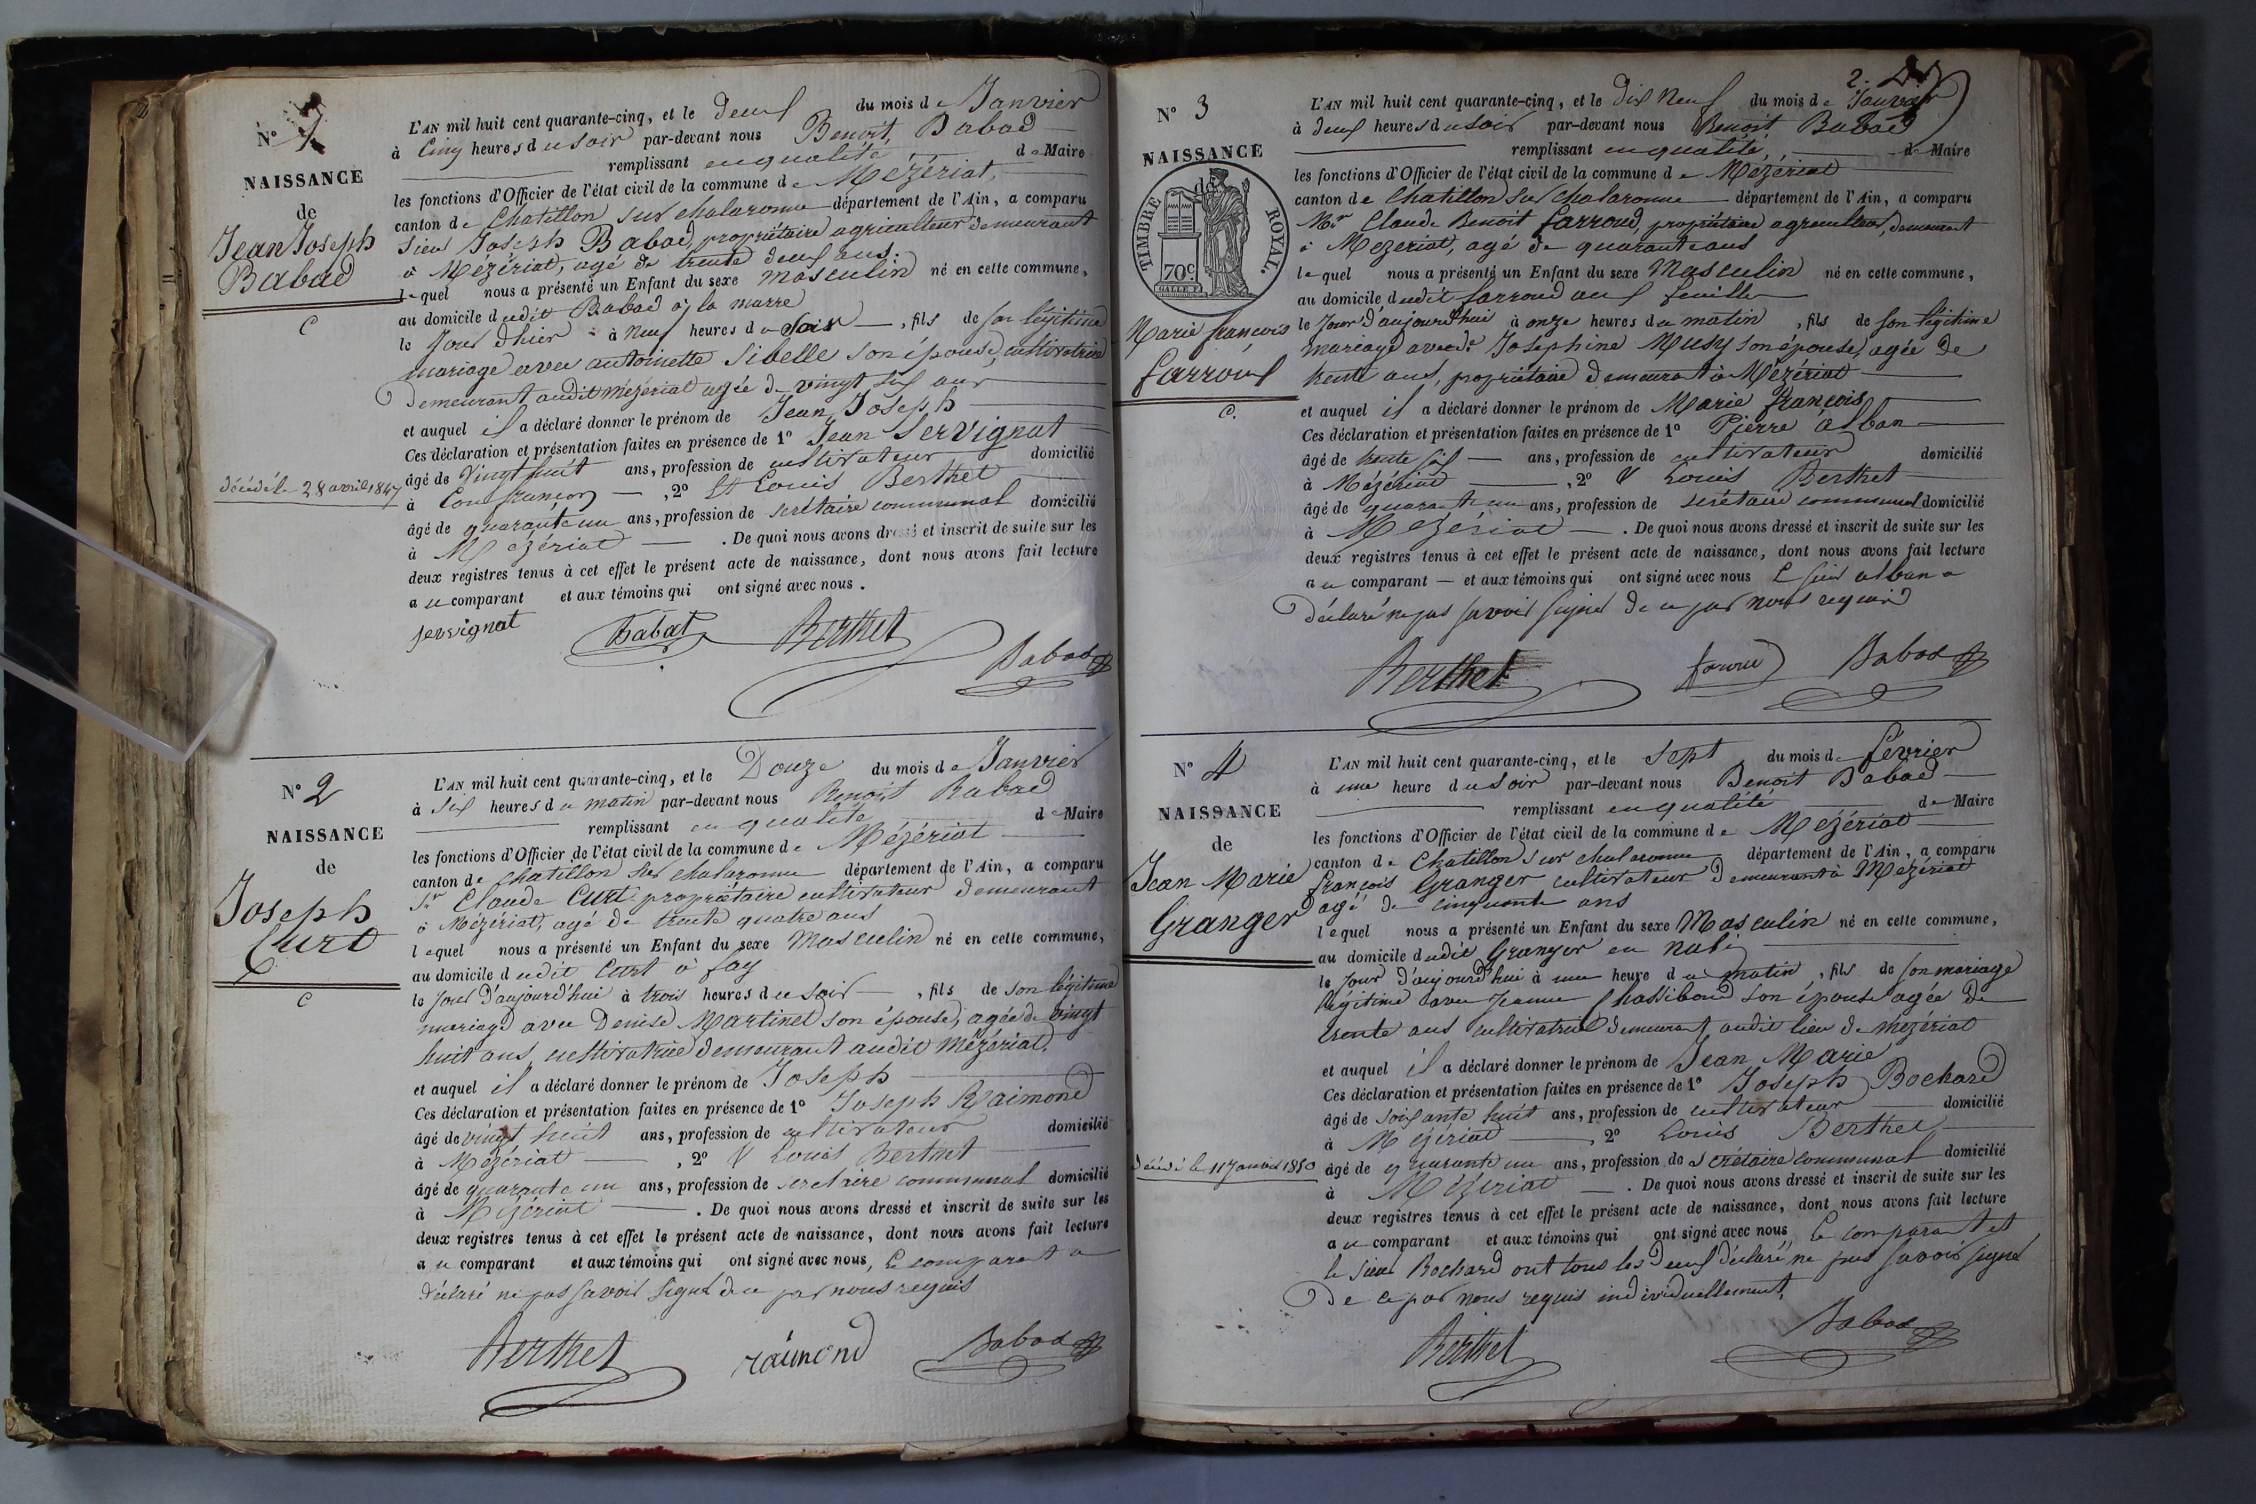 N° 1
NAISSANCE
de
Jean Joseph
Babad
C
décédé le 28 avril 1847
L'AN mil huit cent quarante-cinq, et le deux du mois de Janvier
à cinq heures du soir par-devant nous Benoit Babad
remplissant en qualité de Maire
les fonctions d'Officier de l'état civil de la commune de Mézériat,
canton de Chatillon sur chalaronne département de l'Ain, a comparu
Sieur Joseph Babad, propriétaire agriculteur demeurant
à Mézériat, agé de trente deux ans.
lequel nous a présenté un Enfant du sexe masculin né en cette commune,
au domicile dudit Babad à la marre
le jour d'hier à neuf heures du soir, fils de son légitime
mariage avec antoinette Sibelle son épouse, cultivatrice
demeurant audit mézériat agée de vingt six ans
et auquel il a déclaré donner le prénom de Jean Joseph
Ces déclaration et présentation faites en présence de 1° Jean Servignat
âgé de vingt huit ans, profession de cultivateur domicilié
à Confrançon, 2° et Louis Berthet
âgé de quarante un ans, profession de secrétaire communal domicilié
à Mézériat. De quoi nous avons dressé et inscrit de suite sur les
deux registres tenus à cet effet le présent acte de naissance, dont nous avons fait lecture
au comparant et aux témoins qui ont signé avec nous.
servignat Babat Berthet
Babad
N° 2
NAISSANCE
de
Joseph
Curt
C
L'AN mil huit cent quarante-cinq, et le Douze du mois de Janvier
à six heures du matin par-devant nous Benoit Babad
remplissant en qualité de Maire
les fonctions d'Officier de l'état civil de la commune de Mézériat
canton de chatillon sur chalaronne département de l'Ain, a comparu
Sr Claude Curt propriétaire cultivateur demeurant
à Mézériat, agé de trente quatre ans
lequel nous a présenté un Enfant du sexe Masculin né en cette commune,
au domicile dudit Curt à fay
le jour d'aujourd'hui à trois heures du soir, fils de son légitime
mariage avec Denise Martinet son épouse, agée de vingt
huit ans cultivatrice demeurant audit Mézériat.
et auquel il a déclaré donner le prénom de Joseph
Ces déclaration et présentation faites en présence de 1° Joseph Raimond
âgé de vingt huit ans, profession de cultivateur domicilié
à Mézériat, 2° & Louis Berthet
âgé de quarante un ans, profession de secretaire communal domicilié
à Mézériat. De quoi nous avons dressé et inscrit de suite sur les
deux registres tenus à cet effet le présent acte de naissance, dont nous avons fait lecture
au comparant et aux témoins qui ont signé avec nous, le comparant a
déclaré ne pas savoir signer de ce par nous requis
Berthet raimond Babad
2.
N° 3
NAISSANCE
de
TIMBRE ROYAL.
70c
Marie françois
farroux
C.
L'AN mil huit cent quarante-cinq, et le dix neuf du mois de Janvier
à deux heures du soir par-devant nous Benoit Babad
remplissant en qualité, de Maire
les fonctions d'Officier de l'état civil de la commune de Mézériat
canton de Chatillon sur Chalaronne département de l'Ain, a comparu
Mr Claude Benoit farroud, propriétaire agriculteur, demeurant
à Mezeriat, agé de quarante ans
lequel nous a présenté un Enfant du sexe Masculin né en cette commune,
au domicile dudit farroud aux feuilles
le jour d'aujourd'hui à onze heures du matin, fils de son légitime
mariage avec de Josephine Musy son épouse, agée de
trente ans, propriétaire demeurant à Mézériat
et auquel il a déclaré donner le prénom de Marie françois
Ces déclaration et présentation faites en présence de 1° Pierre alban
âgé de trente six ans, profession de cultivateur domicilié
à Mézériat, 2° & Louis Berthet
âgé de quarante un ans, profession de secrétaire communal domicilié
à Mezériat. De quoi nous avons dressé et inscrit de suite sur les
deux registres tenus à cet effet le présent acte de naissance, dont nous avons fait lecture
au comparant et aux témoins qui ont signé avec nous le sieur alban a
déclaré ne pas savoir signer de ce par nous requis
Berthet Babad
N° 4
NAISSANCE
de
Jean Marie
Granger
décédé le 11 Janvier 1850
L'AN mil huit cent quarante-cinq, et le sept du mois de février
à une heure du soir par-devant nous Benoit Babad
remplissant en qualité de Maire
les fonctions d'Officier de l'état civil de la commune de Mézériat
canton de Chatillon sur chalaronne département de l'Ain, a comparu
françois Granger cultivateur demeurant à Mézériat
agé de cinquante ans
lequel nous a présenté un Enfant du sexe Masculin né en cette commune,
au domicile dudit Granger en
le jour d'aujourd'hui à une heure du matin, fils de son mariage
légitime avec Jeanne Chassiboud son épouse agée de
trente ans cultivatrice demeurant audit lieu de mézériat
et auquel il a déclaré donner le prénom de Jean Marie
Ces déclaration et présentation faites en présence de 1° Joseph Bochard
âgé de soixante huit ans, profession de cultivateur domicilié
à Mézériat, 2° Louis Berthet
âgé de quarante un ans, profession de secrétaire communal domicilié
à Mézériat. De quoi nous avons dressé et inscrit de suite sur les
deux registres tenus à cet effet le présent acte de naissance, dont nous avons fait lecture
au comparant et aux témoins qui ont signé avec nous, le comparant et
le sieur Bochard ont tous les deux déclaré ne pas savoir signer
de ce par nous requis individuellement.
Berthet Babad